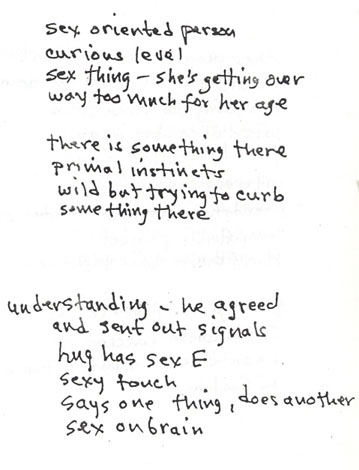 sex oriented person
curious level
sex thing – she's getting over
way too much for her age
there is something there
primal instincts
wild but trying to curb
something there
understanding – he agreed
and sent out signals
hug has sex E
sexy touch
says one thing, does another
sex on brain